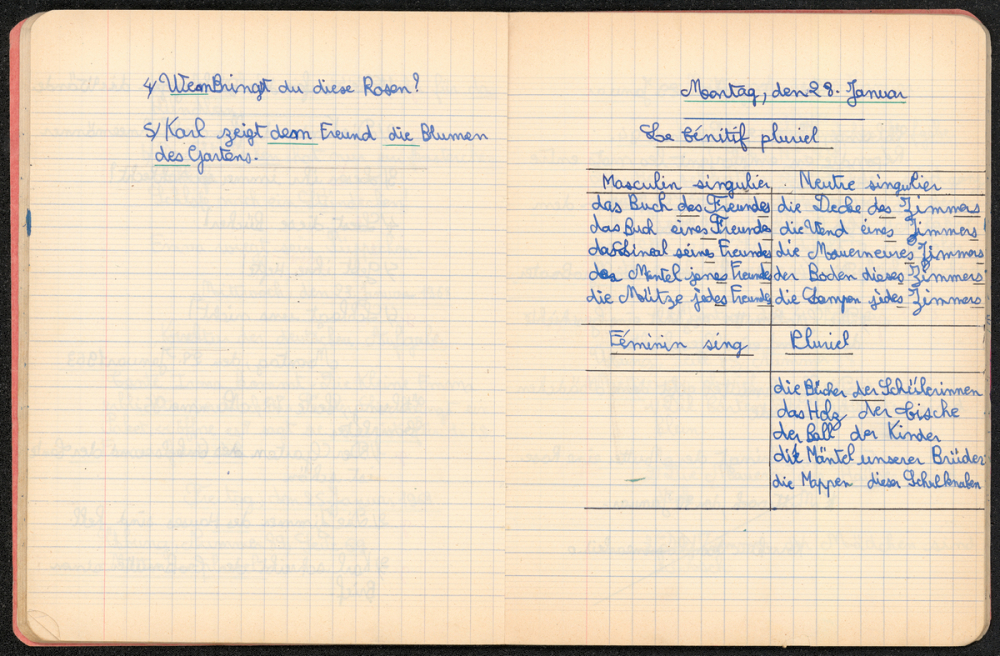 4/ Wem Bringt du diese Rosen?
5/ Karl zeigt dem Freund die Blumen
des Gartens.
Montag, den 28. Januar
Le Génitif pluriel
Masculin singulier Neutre singulier
das Buch des Freundes die Decke des Zimmers
das Buch eines Freundes die Wend eines Zimmers
das Lineal seines Freundes die Mauer neures Zimmers
der Mantel jenes Freundes der Boden dieses Zimmers
die Mütze jedes Freundes die Lampen jedes Zimmers
Féminin sing Pluriel
die Bücher der Schülerinnen
das Holz der Tische
der Ball der Kinder
die Mäntel unserer Brüder
die Mappen dieser Schulknaben